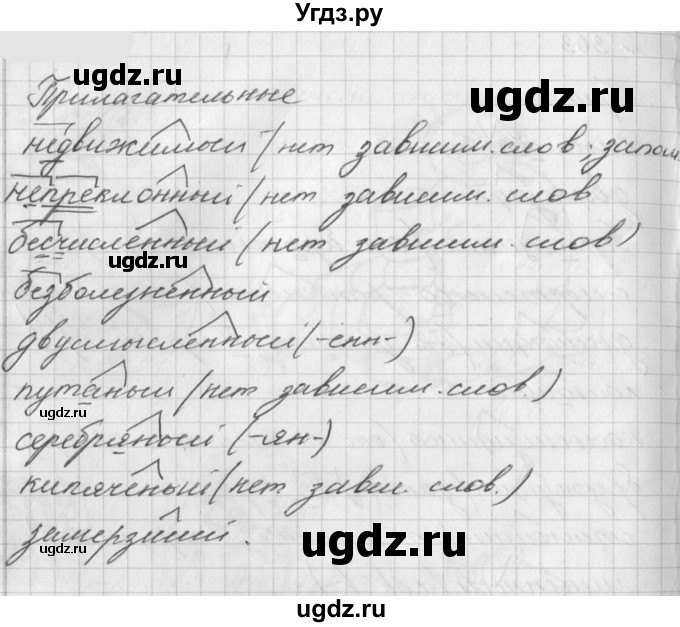 Угдз.ру
Прилагательные
ugdz.ru
ugdz.ru
недвижимый (нет зависим. слов; запом.
непреклонный (нет зависим. слов
бесчисленный (нет зависим. слов)
ugdz.ru
безболезненный
двусмысленный (-енн-)
путаный (нет зависим. слов.)
ugdz.ru
серебряный (-ян-)
кипячёный (нет завис. слов.)
замерзший.
ugdz.ru
ugdz.ru
ugdz.ru